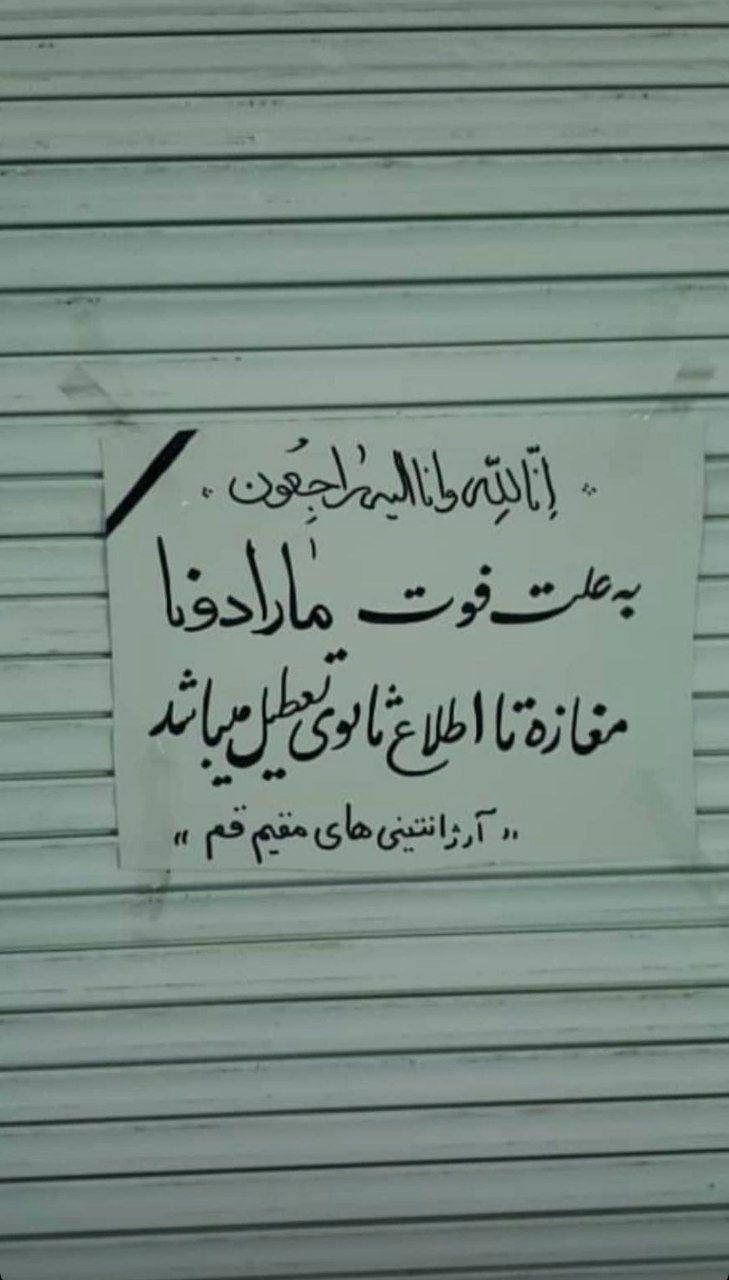 إنّا لِلّه وانا الیه راجِعُون
به علت فوت مارادونا
مغازه تا اطلاع ثانوی تعطیل میباشد
„ آرژانتینی های مقیم قم "